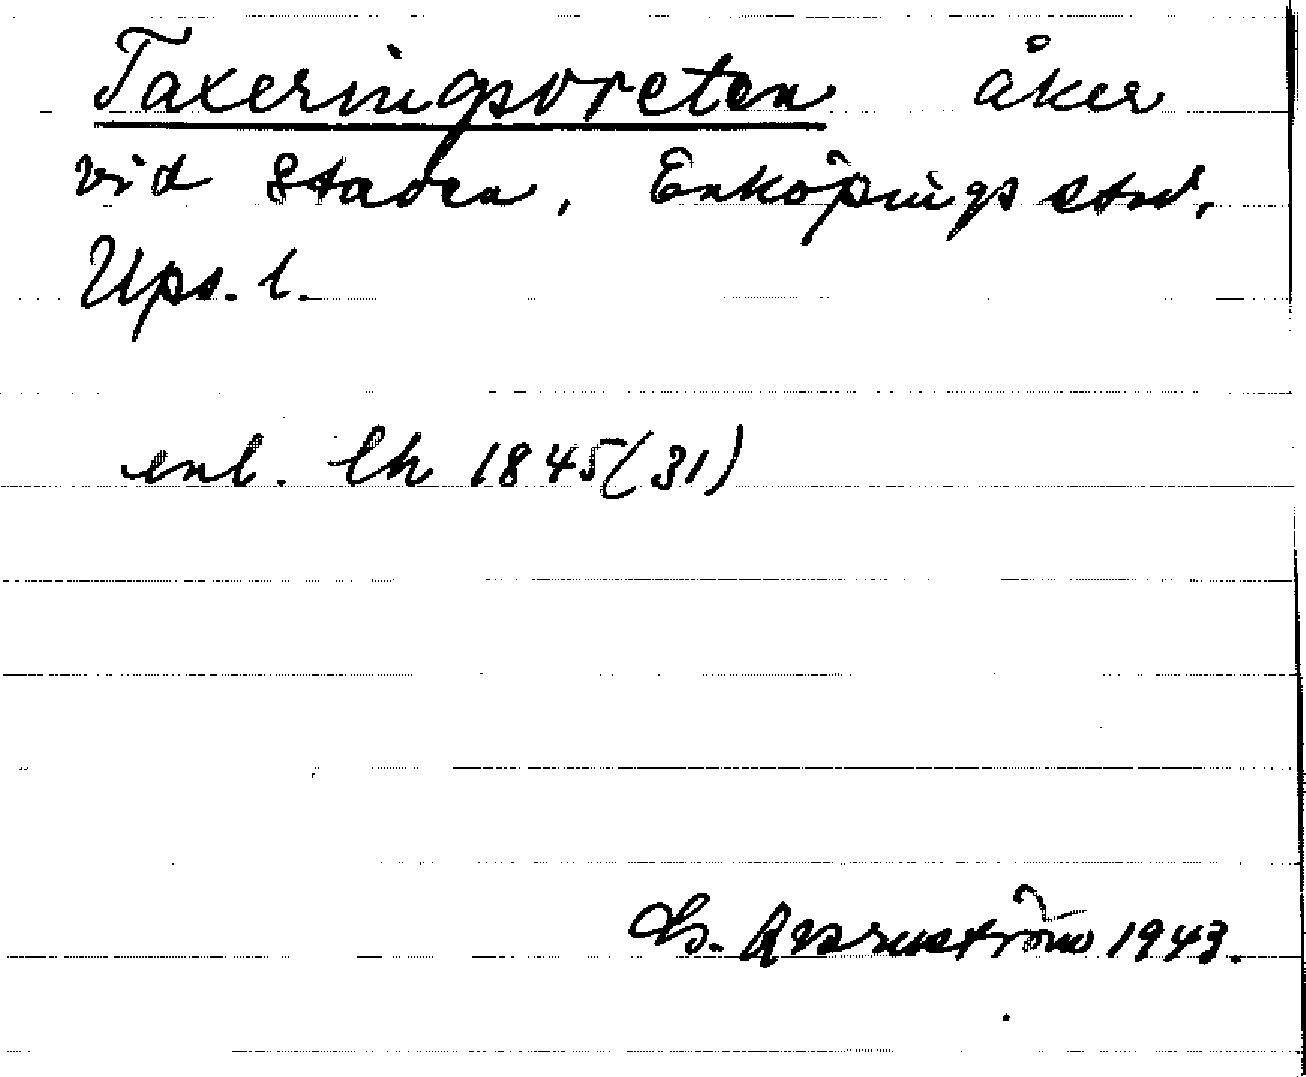 Taxeringsvreten åker
vid Staden, Enköpings stad,
Ups. l.
enl. lh 1845(31)
1943.